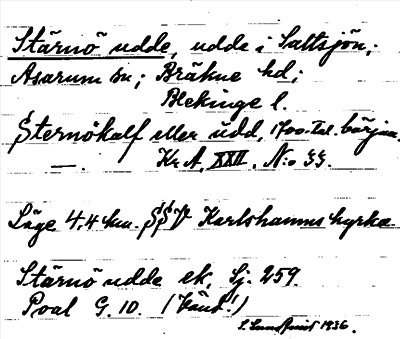 Stärnö udde, udde i Saltsjön;
Asarum sn; Bräkne hd;
Blekinge l.
Sternökalf eller udd, 1700-tal. början.
— . Kr A, XXII, N:o 33.
Läge 4,4 km. SSV Karlshamns kyrka.
Stärnö udde ek. Sj. 259.
Poal G. 10. (Vänd!)
S. Lundqvist 1936.